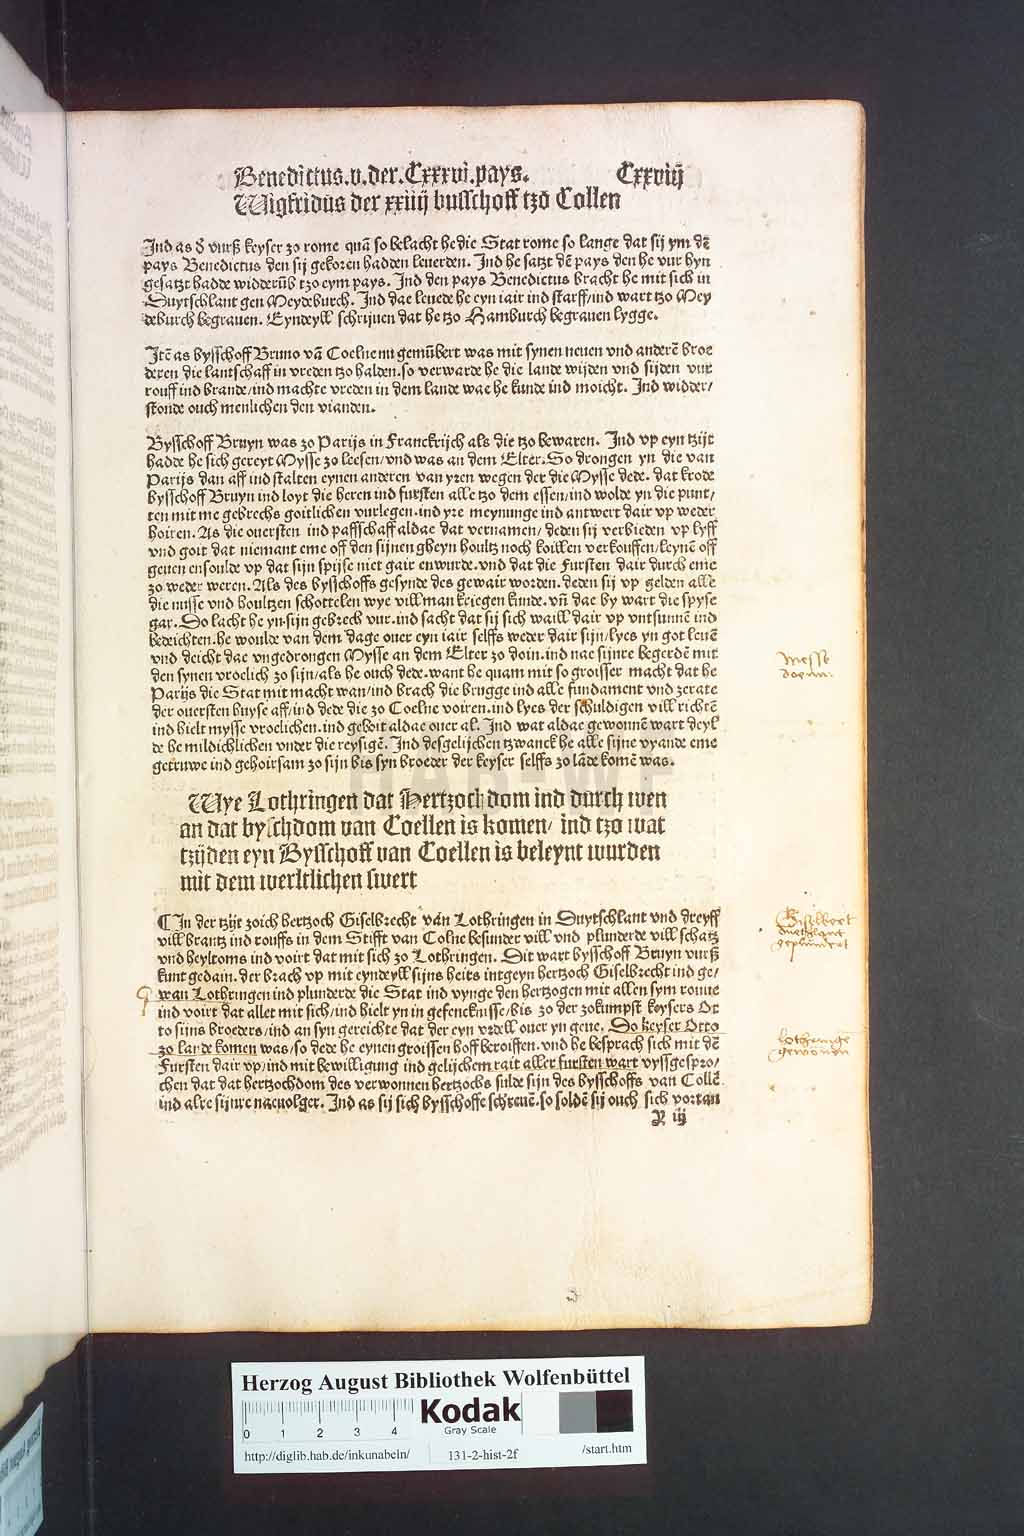 Benedictus.v.der.Cxxxvi.pays. Cxxviij
Wigfridus der xxiiij busschoff tzo Collen
Ind as d vurß keyser zo rome quā so belacht he die Stat rome so lange dat sij ym dē
pays Benedictus den sij gekoren hadden leuerden. Ind he satzt dē pays den he vur hyn
gesatzt hadde widderūb tzo eym pays. Ind den pays Benedictus bracht he mit sich in
Duytschlant gen Meydeburch. Ind dae leuede he eyn iair ind starff/ind wart tzo Mey
deburch begrauen. Eyndeyll schrijuen dat he tzo Hamburch begrauen lygge.
Itē as bysschoff Bruno vā Coelne nu gemūbert was mit synen neuen vnd anderē broe
deren die lantschaff in vreden tzo halden.so verwarde he die lande wijden vnd sijden vur
rouff ind brande/ind machte vreden in dem lande wae he kunde ind moicht. Ind widder/
stonde ouch menlichen den vianden.
Bysschoff Bruyn was zo Parijs in Franckrijch als die tzo bewaren. Ind vp eyn tzijt
hadde he sich gereyt Mysse zo leesen/vnd was an dem Elter.So drongen yn die van
Parijs dan aff ind stalten eynen anderen van yren wegen der die Mysse dede. dat krode
bysschoff Bruyn ind loyt die heren ind fursten alle tzo dem essen/ind wolde yn die punt/
ten mit me gebrechs goitlichen vurlegen.ind yre meynunge ind antwert dair vp weder
hoiren. As die ouersten ind paffschaff aldae dat vernamen/ deden sij verbieden vp lyff
vnd goit dat niemant eme off den sijnen gheyn houltz noch koillen verkouffen/keynē off
geuen ensoulde vp dat sijn spijse niet gair enwurde.vnd dat die Fursten dair durch eme
zo weder weren. Als des bysschoffs gesynde des gewair worden. deden sij vp gelden alle
die nusse vnd houltzen schottelen wye vill man kriegen kunde. vñ dae by wart die spyse
gar. Do lacht he yn sijn gebrech vur.ind sacht dat sij sich waill dair vp vntsunnē ind
bedeichten.he woulde van dem dage ouer eyn iair selffs weder dair sijn/lyes yn got leuē
vnd deicht dae vngedrongen Mysse an dem Elter zo doin.ind nae sijnre begerdē mit
den synen vroelich zo sijn/als he ouch dede.want he quam mit so groisser macht dat he
Parijs die Stat mit macht wan/ind brach die brugge ind alle fundament vnd zerate
der ouersten huyse aff/ind dede die zo Coelne voiren.ind lyes der schuldigen vill richtē
ind hielt mysse vroelichen.ind geboit aldae ouer al. Ind wat aldae gewonnē wart deyl
de he mildichlichen vnder die reysigē. Ind desgelijchen tzwanck he alle sijne vyande eme
getruwe ind gehoirsam zo sijn bis syn broeder der keyser selffs zo lāde komē was.
Wye Lothringen dat Hertzochdom ind durch wen
an dat byschdom van Coellen is komen/ ind tzo wat
tzijden eyn Bysschoff van Coellen is beleynt wurden
mit dem werltlichen swert
¶ In der tzijt zoich hertzoch Giselbrecht van Lothringen in Duytschlant vnd dreyff
vill brantz ind rouffs in dem Stifft van Colne besunder vill vnd plunderde vill schatz
vnd heyltoms ind voirt dat mit sich zo Lothringen. Dit wart bysschoff Bruyn vurß
kunt gedain. der brach vp mit eyndeyll sijns heirs intgeyn hertzoch Giselbrecht ind ge/
wan Lothringen ind plunderde die Stat ind vynge den hertzogen mit allen sym rouue
ind voirt dat allet mit sich/ind hielt yn in gefencknisse/bis zo der zokumpst keysers Ot
to sijns broeders/ind an syn gereichte dat der eyn vrdell ouer yn geue. Do keyser Otto
zo lande komen was/so dede he eynen groissen hoff beroiffen.vnd he besprach sich mit dē
Fursten dair vp/ind mit bewilligung ind gelijchem rait aller fursten wart vyssgespro/
chen dat dat hertzochdom des verwonnen hertzochs sulde sijn des bysschoffs van Collē
ind alre sijnre nacuolger. Ind as sij sich bysschoffe schreuē.so soldē sij ouch sich vortan
iij
Messe
doenn.
Giselbert
duetzlant
geplundert
lothringē
gewonen
HAB-WF
Herzog August Bibliothek Wolfenbüttel
0 1 2 3 4
Kodak
Gray Scale
http://diglib.hab.de/inkunabeln/ 131-2-hist-2f /start.htm